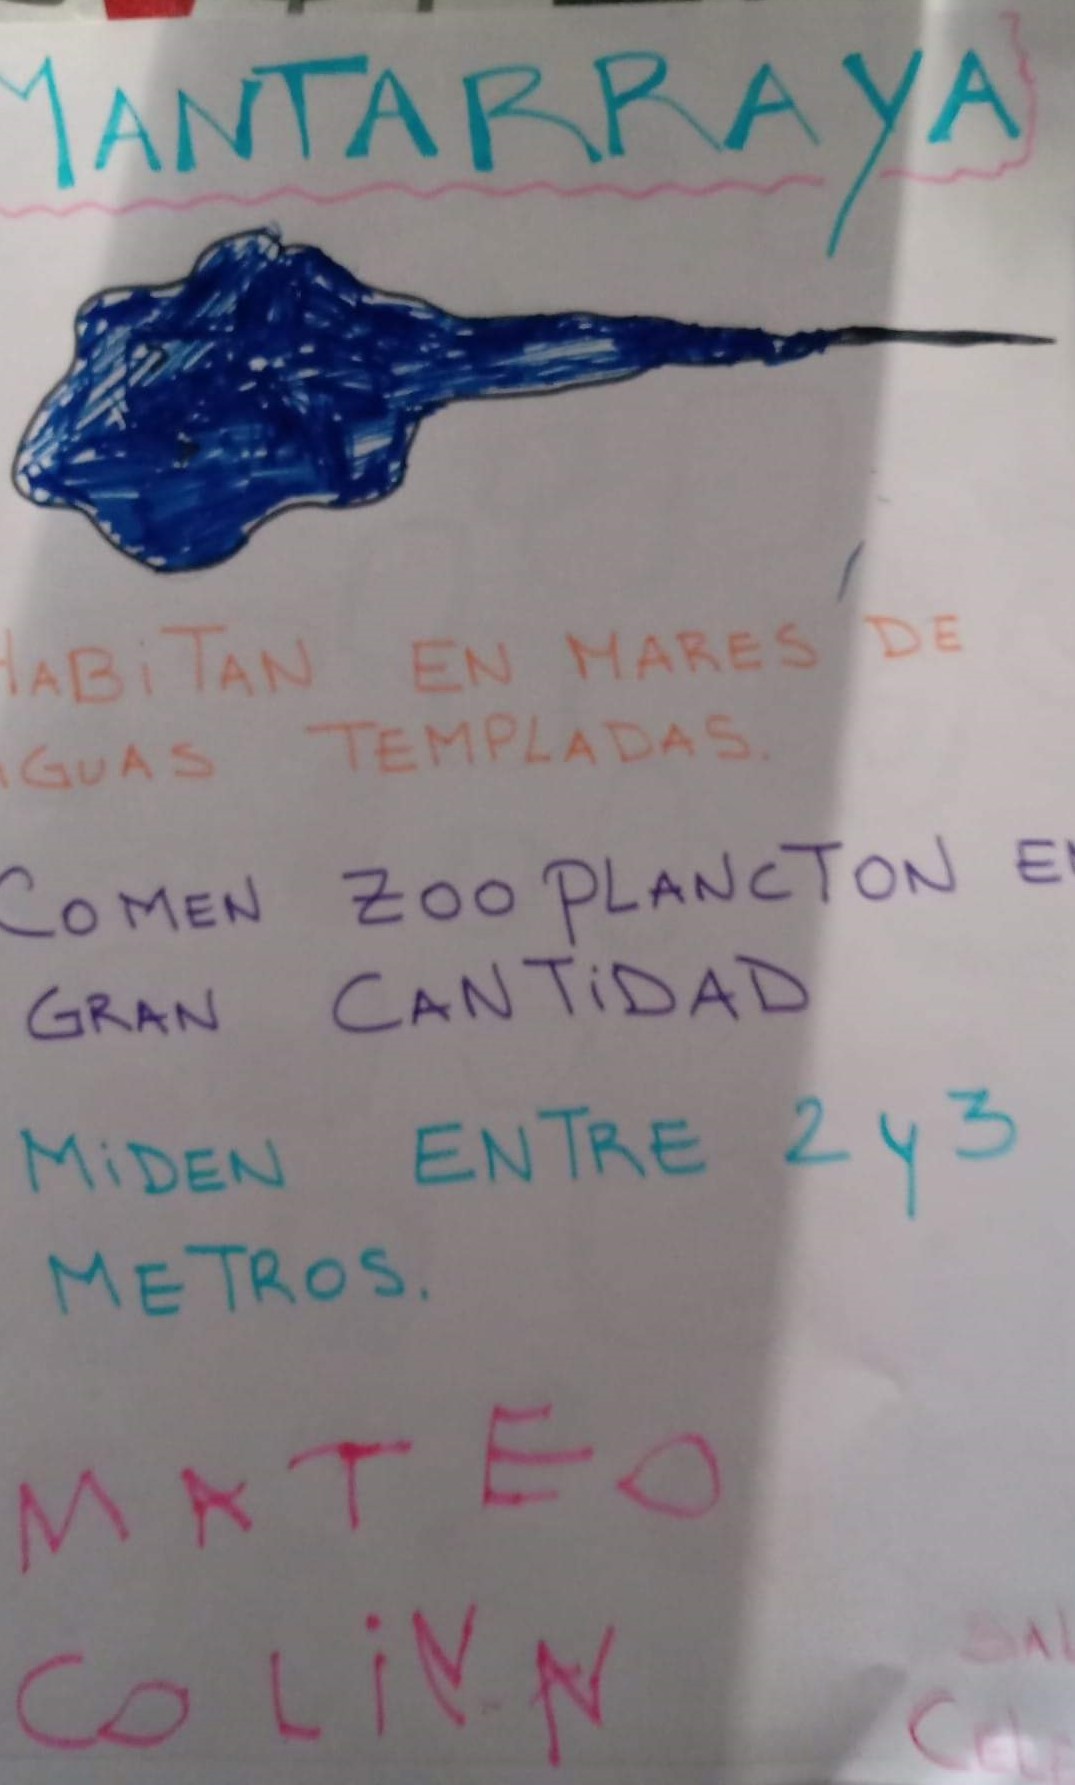 MANTARRAYA
HABITAN EN MARES DE
AGUAS TEMPLADAS.
COMEN ZOOPLANCTON EN
GRAN CANTIDAD
MIDEN ENTRE 2 y 3
METROS.
MATEO
COLINN